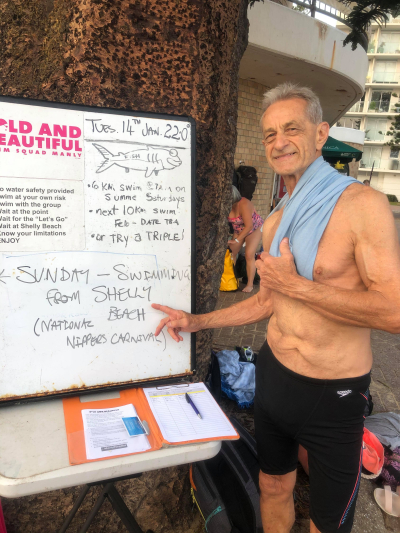 LD AND
EAUTIFUL
M SQUAD MANLY
o water safety provided
wim at your own risk
wim with the group
Wait at the point
Wait for the "Let's Go"
Wait at Shelly Beach
Know your limitations
ENJOY
TUES. 14TH JAN. 22.0°
• 6 KM SWIM
SUMME SATURDAYS
• NEXT 10KM SWIM
FEB - DATE TBA
• OR TRY A TRIPLE!
← SUNDAY - SWIMMING
FROM SHELLY
BEACH
(NATIONAL
NIPPERS CARNIVAL)
speedo